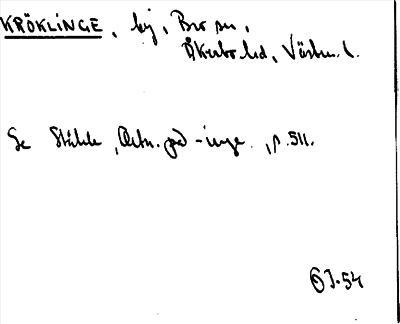 KRÖKLINGE, by, Bro sn,
Åkerbo hd, Västm. l.
Se Ståhle, Ortn. på -inge, p. 511.
J-54